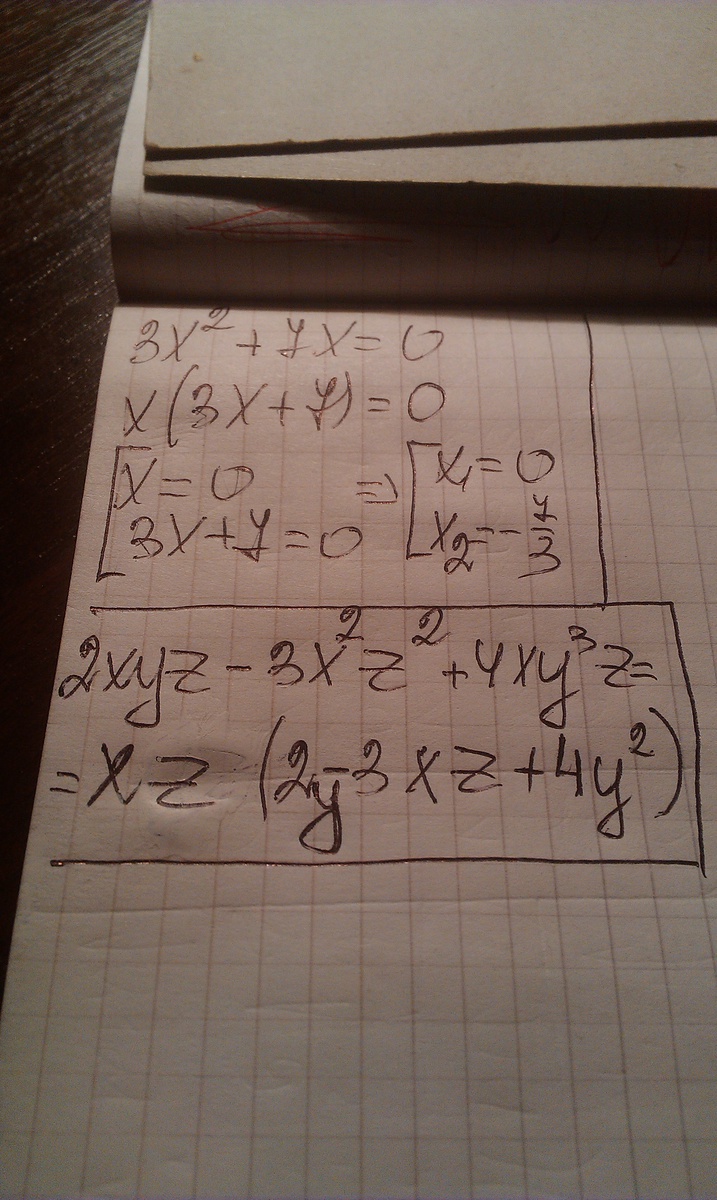 3x² + 7x = 0
x(3x + 7) = 0
[x = 0 ⇒ [x₁ = 0
3x + 7 = 0 x₂ = -7/3
2xyz - 3x²z² + 4xy³z =
= xz (2y - 3xz + 4y²)